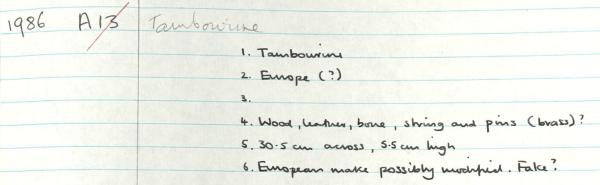 1986 A13 Tambourine
1. Tambourine
2. Europe (?)
3.
4. Wood, leather, bone, string and pins (brass)?
5. 30.5 cm across, 5.5 cm high
6. European make possibly modified. Fake?